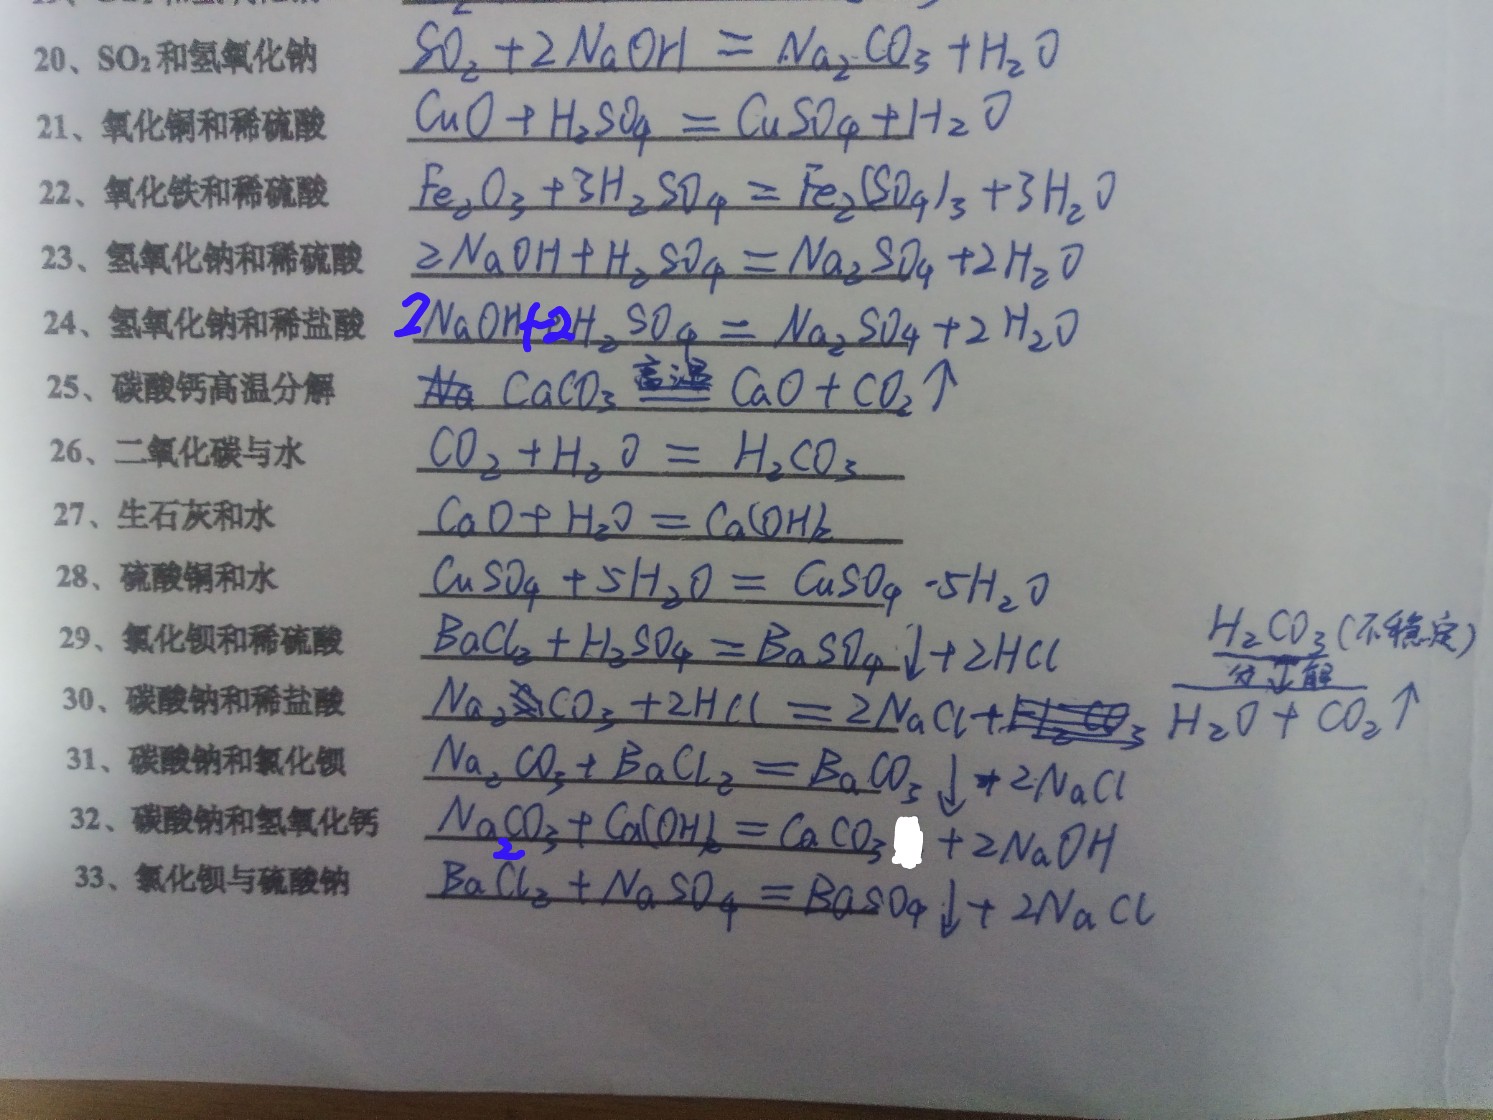 20、SO₂和氢氧化钠 SO₂+2NaOH=Na₂CO₃+H₂O
21、氧化铜和稀硫酸 CuO+H₂SO₄=CuSO₄+H₂O
22、氧化铁和稀硫酸 Fe₂O₃+3H₂SO₄=Fe₂(SO₄)₃+3H₂O
23、氢氧化钠和稀硫酸 2NaOH+H₂SO₄=Na₂SO₄+2H₂O
24、氢氧化钠和稀盐酸 2NaOH+2H₂SO₄=Na₂SO₄+2H₂O
25、碳酸钙高温分解 Na CaCO₃ 高温 CaO+CO₂↑
26、二氧化碳与水 CO₂+H₂O=H₂CO₃
27、生石灰和水 CaO+H₂O=Ca(OH)₂
28、硫酸铜和水 CuSO₄+5H₂O=CuSO₄·5H₂O
29、氯化钡和稀硫酸 BaCl₂+H₂SO₄=BaSO₄↓+2HCl
H₂CO₃(不稳定)
分↓解
30、碳酸钠和稀盐酸 Na₂CO₃+2HCl=2NaCl+H₂CO₃ H₂O+CO₂↑
31、碳酸钠和氯化钡 Na₂CO₃+BaCl₂=BaCO₃↓+2NaCl
32、碳酸钠和氢氧化钙 Na₂CO₃+Ca(OH)₂=CaCO₃ +2NaOH
33、氯化钡与硫酸钠 BaCl₂+NaSO₄=BaSO₄↓+2NaCl